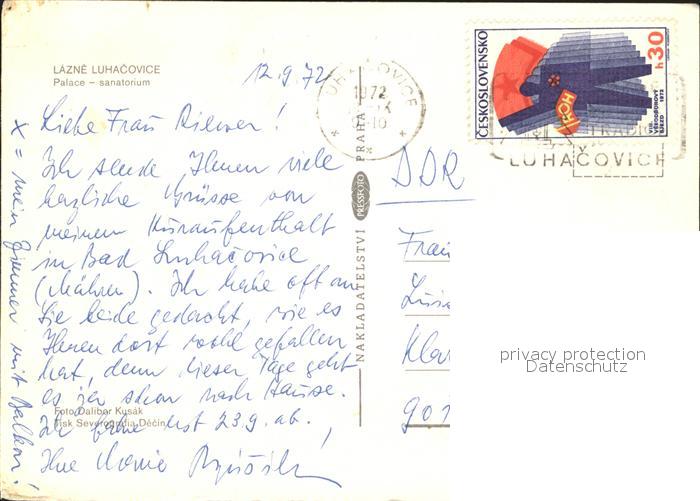 LÁZNĚ LUHAČOVICE
Palace – sanatorium
12.9.72
Liebe Frau
Ich sende Ihnen viele
herzliche Grüsse von
meinem Kuraufenthalt
in Bad Luhačovice
(Mähren). Ich habe oft an
Sie beide gedacht, wie es
Ihnen dort wohl gefallen
hat, denn dieser Tage geht
es ja schon nach Hause.
Ich fahre erst 23.9. ab.
Ihre
x = mein Zimmer mit Balkon!
Foto Dalibor Kusák
Tisk Severografia Děčín
NAKLADATELSTVÍ PRESSFOTO PRAHA
LUHAČOVICE
1972
ČESKOSLOVENSKO
h 30
VIII.
VŠEODBOROVÝ
SJEZD
1972
ROH
LUHAČOVICE
DDR
Frau
901
privacy protection
Datenschutz